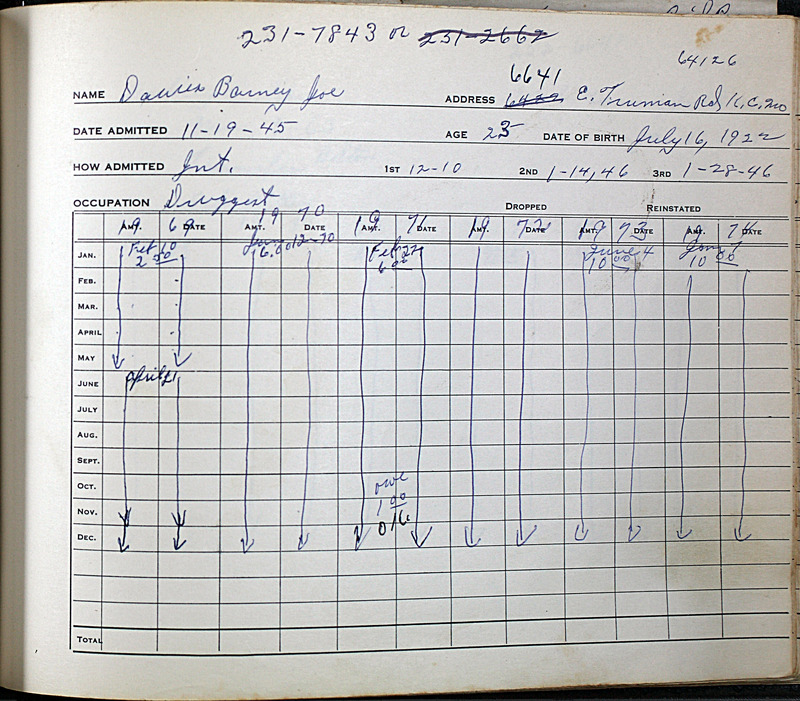 231-7843 or 231-2662
64126
6641
NAME Davies Barney Joe ADDRESS E. Truman Rd K.C. Mo
DATE ADMITTED 11-19-45 AGE 23 DATE OF BIRTH July 16, 1922
HOW ADMITTED Int. 1ST 12-10 2ND 1-14, 46 3RD 1-28-46
OCCUPATION Druggest DROPPED REINSTATED
19 69 19 70 19 71 19 72 19 73 19 74
AMT. DATE AMT. DATE AMT. DATE AMT. DATE AMT. DATE AMT. DATE
JAN. Feb 10 2.50 6.00 12-70 Feb 27 6.00 June 4 10.00 Jan 7 10.00
FEB.
MAR.
APRIL
MAY
JUNE April
JULY
AUG.
SEPT.
OCT. owe
NOV. 1.00 O.K.
DEC.
TOTAL